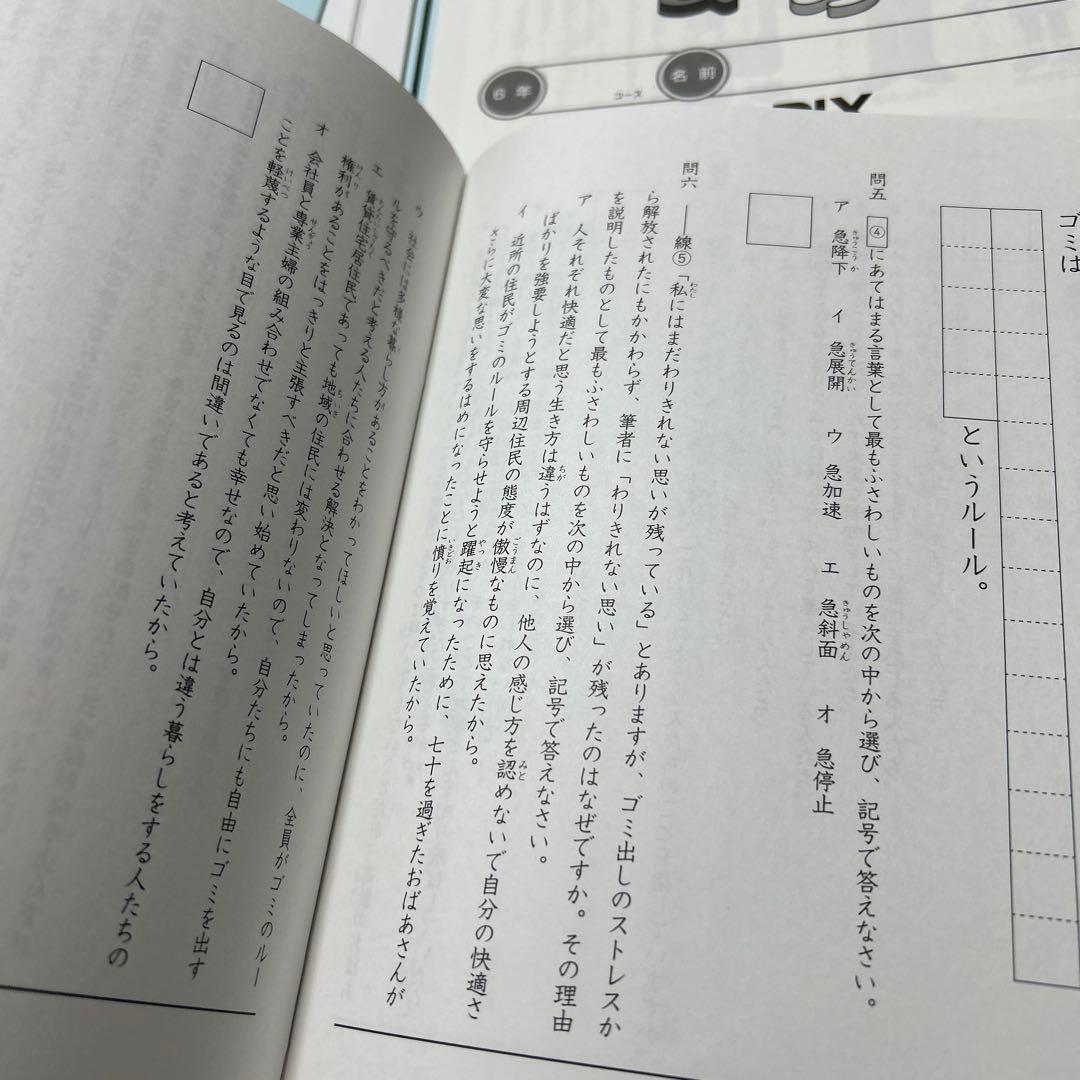 6年
コース
名前
ゴミは
というルール。
問五 ④にあてはまる言葉として最もふさわしいものを次の中から選び、記号で答えなさい。
ア 急降下 イ 急展開 ウ 急加速 エ 急斜面 オ 急停止
問六 ――線⑤「私にはまだわりきれない思いが残っている」とありますが、ゴミ出しのストレスか
ら解放されたにもかかわらず、筆者に「わりきれない思い」が残ったのはなぜですか。その理由
を説明したものとして最もふさわしいものを次の中から選び、記号で答えなさい。
ア 人それぞれ快適だと思う生き方は違うはずなのに、他人の感じ方を認めないで自分の快適さ
ばかりを強要しようとする周辺住民の態度が傲慢なものに思えたから。
イ 近所の住民がゴミのルールを守らせようと躍起になったために、七十を過ぎたおばあさんが
さらに大変な思いをするはめになったことに憤りを覚えていたから。
ウ 社会には多様な暮らし方があることをわかってほしいと思っていたのに、全員がゴミのルー
ルを守るべきだと考える人たちに合わせる解決となってしまったから。
エ 賃貸住宅居住民であっても地域の住民には変わりないので、自分たちにも自由にゴミを出す
権利があることをはっきりと主張すべきだと思い始めていたから。
オ 会社員と専業主婦の組み合わせでなくても幸せなので、自分とは違う暮らしをする人たちの
ことを軽蔑するような目で見るのは間違いであると考えていたから。